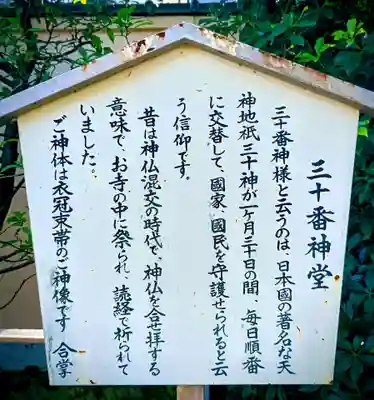 三十番神堂
三十番神様と云うのは、日本國の著名な天
神地祇三十神が一ヶ月三十日の間、毎日順番
に交替して、國家、國民を守護せられると云
う信仰です。
昔は神仏混交の時代で、神仏を合せ拝する
意味で、お寺の中に祭られ、読経で祈られて
いました。
ご神体は衣冠束帯のご神像です 合掌